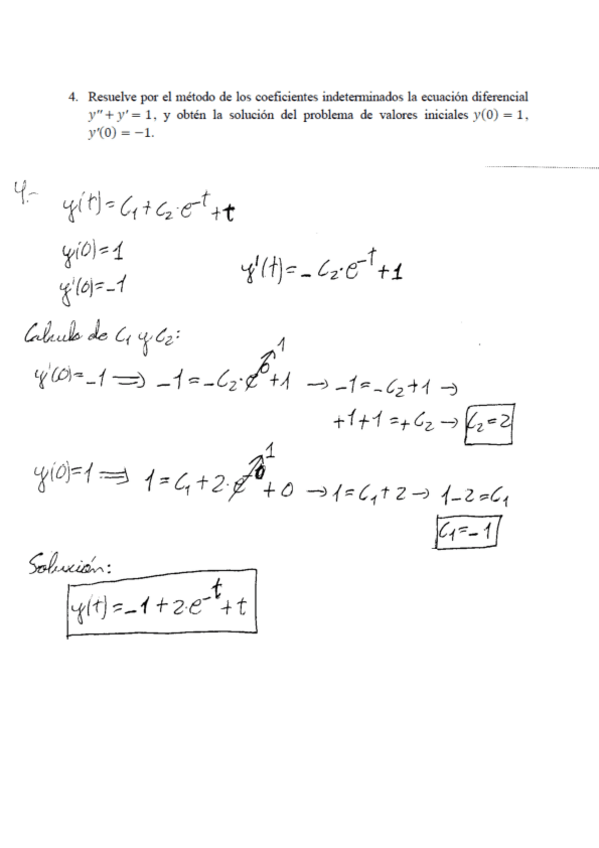 4. Resuelve por el método de los coeficientes indeterminados la ecuación diferencial
y'' + y' = 1, y obtén la solución del problema de valores iniciales y(0) = 1,
y'(0) = −1.
4.-
y(t) = C₁ + C₂·e^-t + t
y(0) = 1
y'(0) = -1
y'(t) = - C₂·e^-t + 1
Calculo de C₁ y C₂:
y'(0) = -1 ⟹ -1 = -C₂·e^0 + 1 → -1 = -C₂ + 1 →
1
+1 + 1 = + C₂ → C₂ = 2
y(0) = 1 ⟹ 1 = C₁ + 2·e^0 + 0 → 1 = C₁ + 2 → 1 - 2 = C₁
1
C₁ = -1
Solución:
y(t) = -1 + 2·e^-t + t